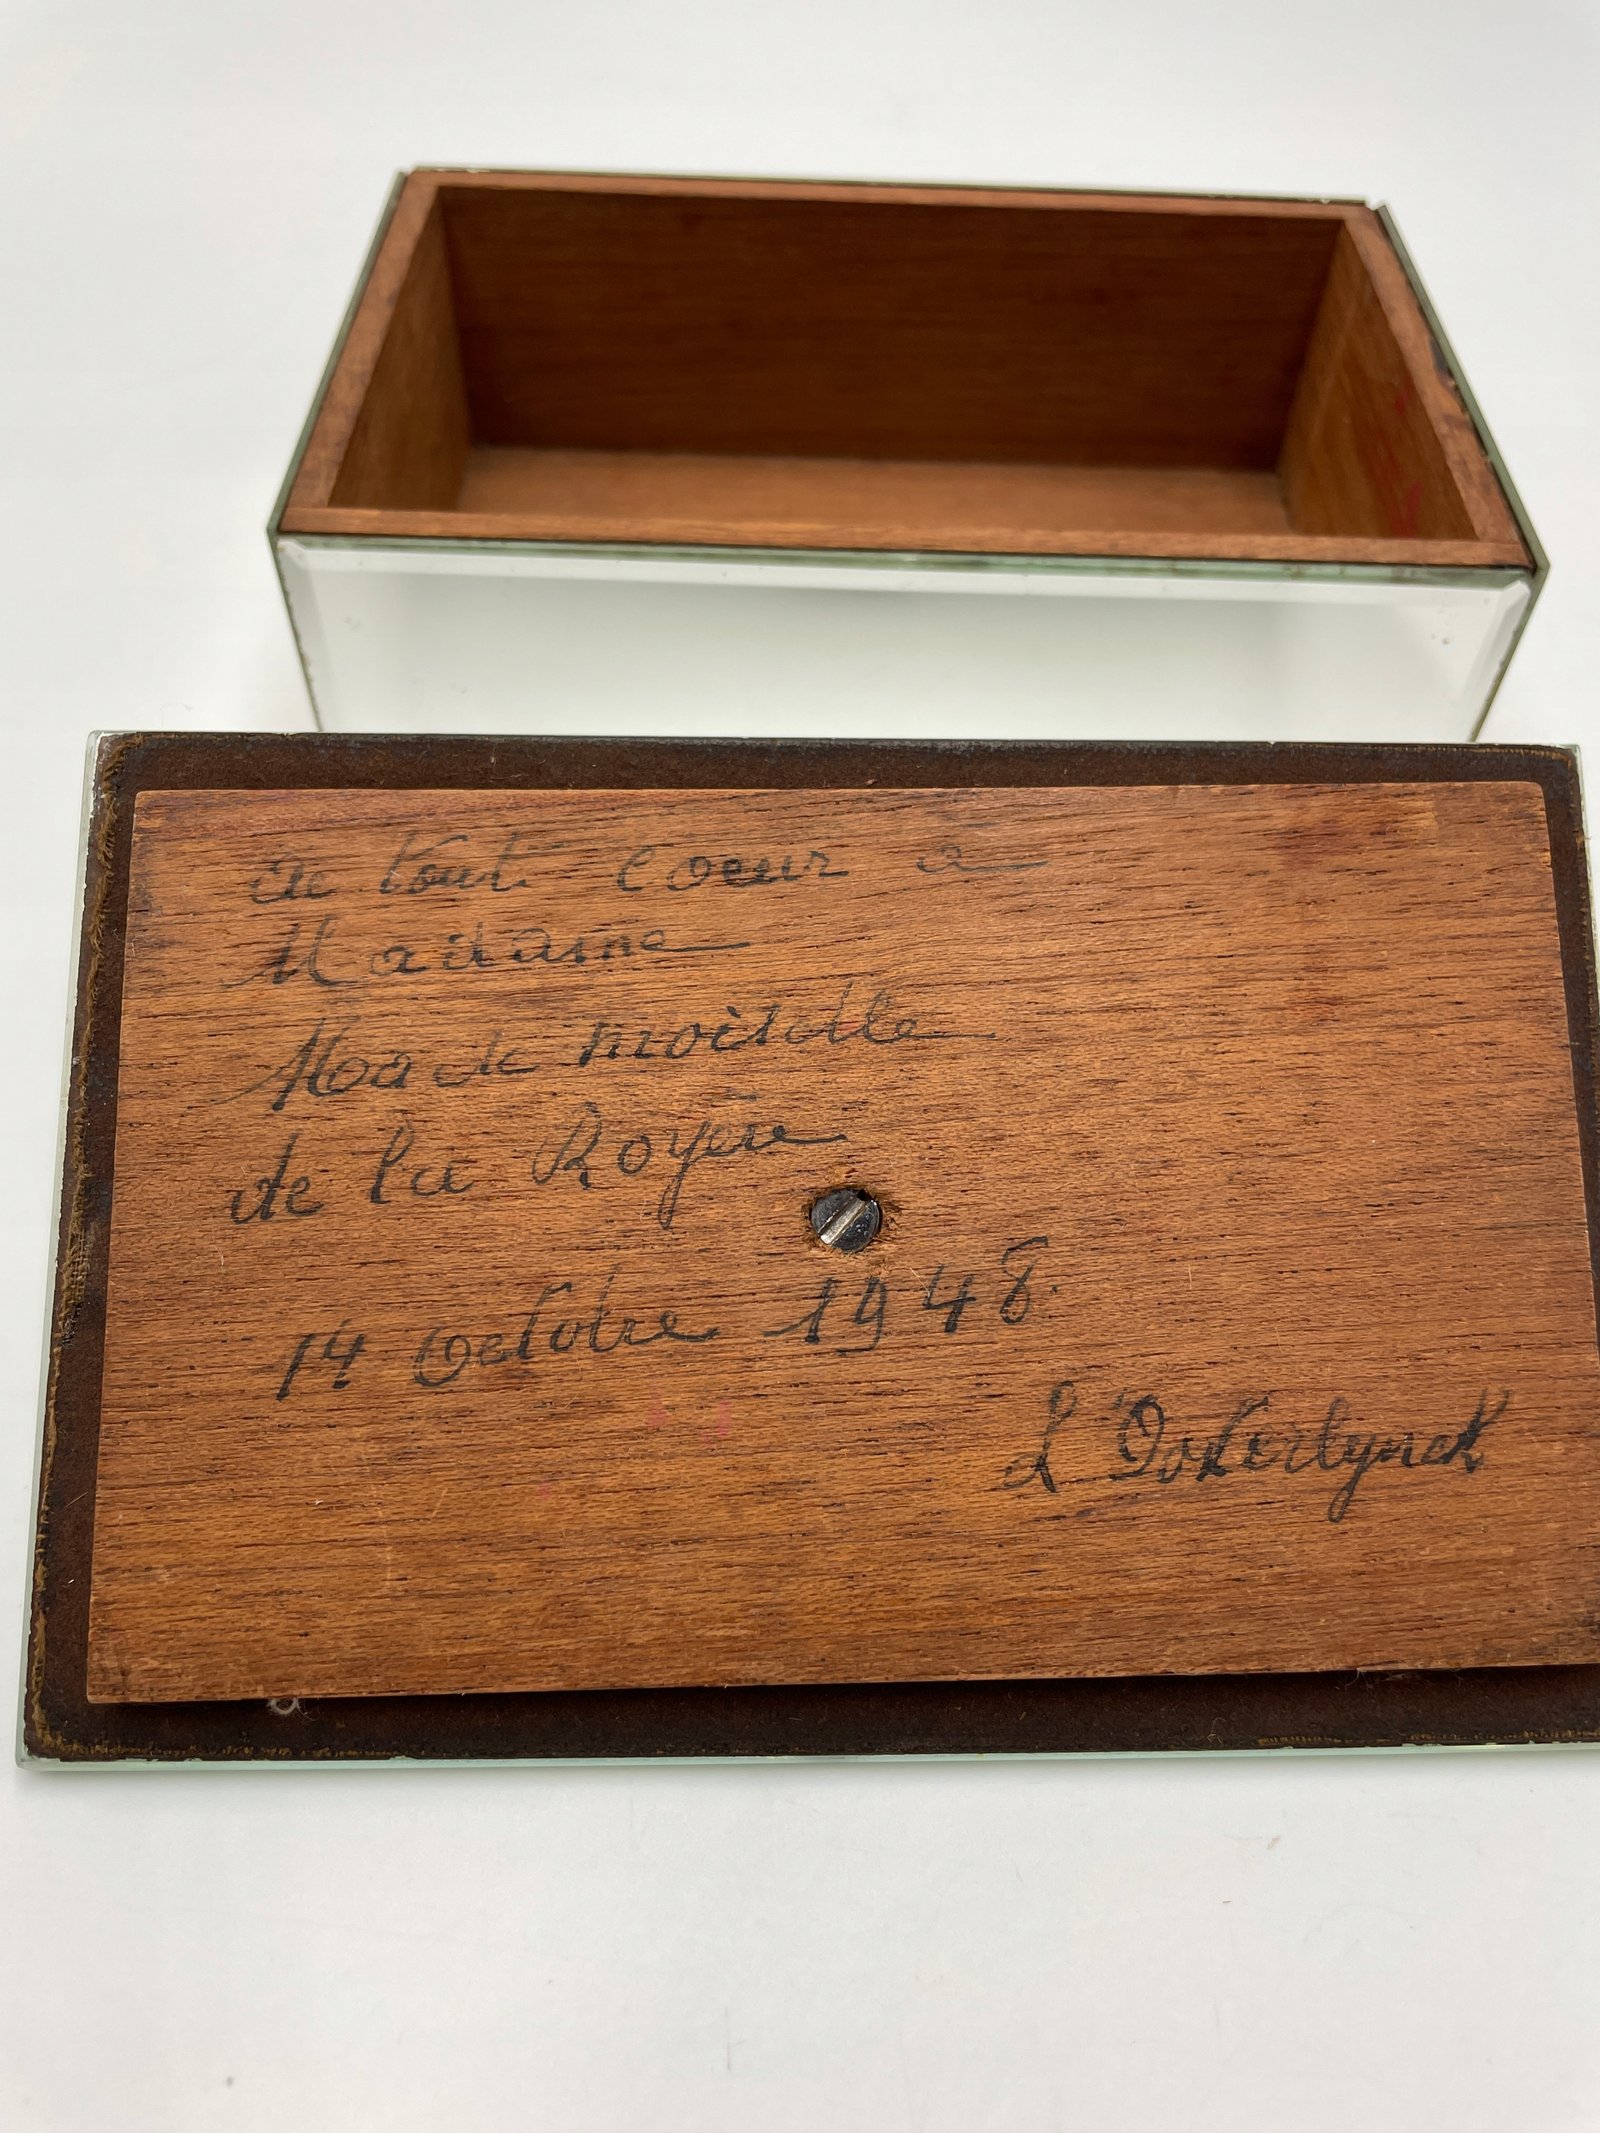 de tout coeur à
Madame
Mademoiselle
de la Royère
14 Octobre 1948.
L Oosterlynck